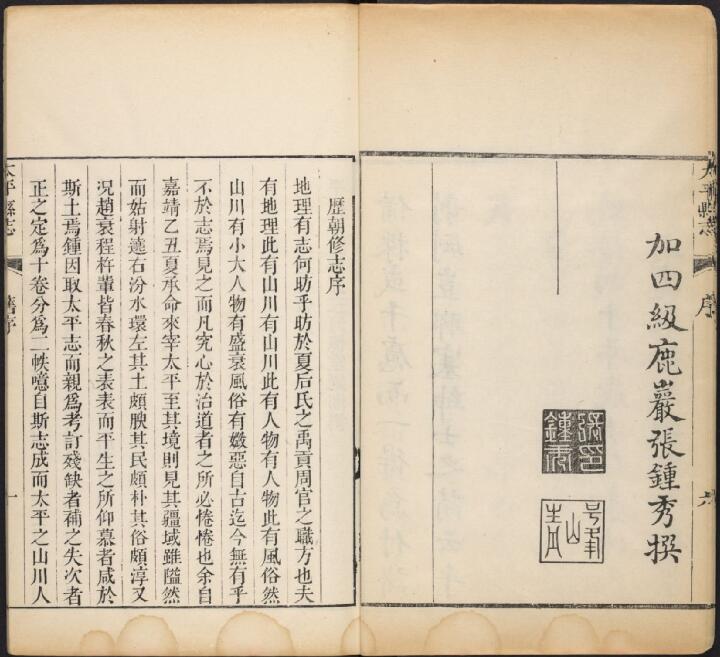 太平縣志
序
六
加四級鹿巖張鍾秀撰
歷朝修志序
地理有志何昉乎昉於夏后氏之禹貢周官之職方也夫
有地理此有山川有山川此有人物有人物此有風俗然
山川有小大人物有盛衰風俗有媺惡自古迄今無有乎
不於志焉見之而凡究心於治道者之所必惓惓也余自
嘉靖乙丑夏承命來宰太平至其境則見其疆域雖隘然
而姑射遶右汾水環左其土頗腴其民頗朴其俗頗淳又
况趙衰程杵輩皆春秋之表表而平生之所仰慕者咸於
斯土焉鍾因取太平志而親爲考訂殘缺者補之失次者
正之定爲十卷分爲二帙噫自斯志成而太平之山川人
太平縣志
舊序
一